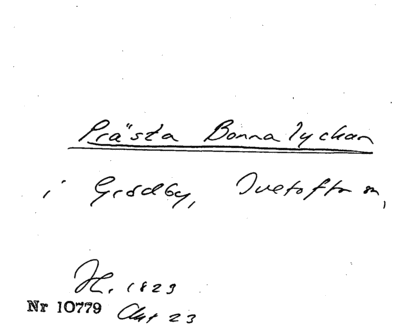 Prästa Bonnalyckan
i Grödby, Ivetofta sn,
H. 1823
Nr 10779 Akt 23